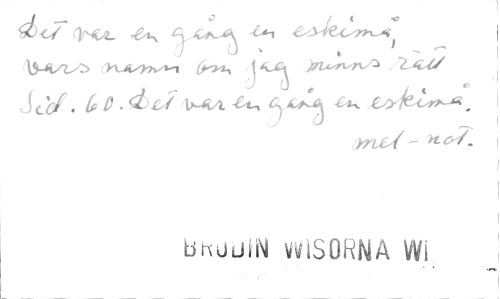 Det var en gång en eskimå,
vars namn om jag minns rätt
Sid. 60. Det var en gång en eskimå.
mel-not.
BRODIN WISORNA WI